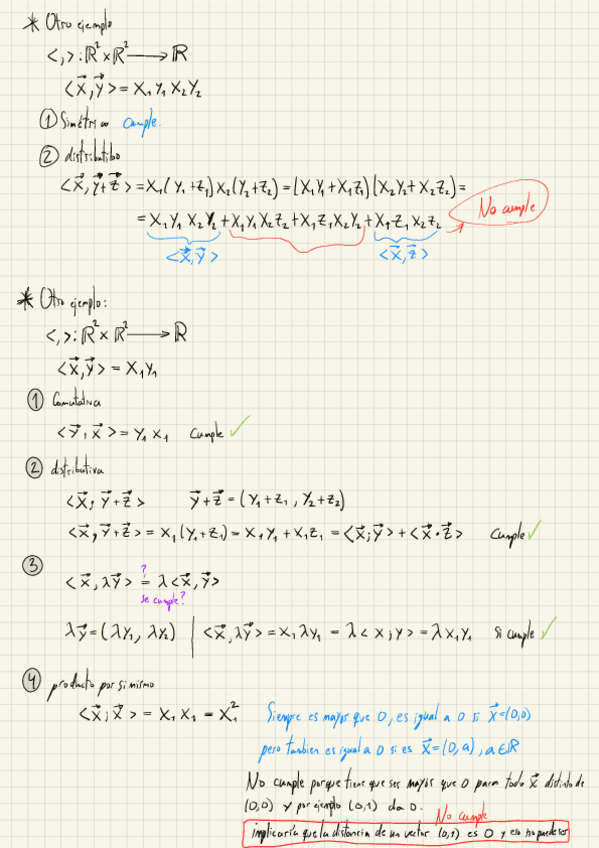 * Otro ejemplo
<,>: ℝ² × ℝ² ⟶ ℝ
<x⃗,y⃗> = x₁ y₁ x₂ y₂
① Simétrico cumple.
② distributibo
<x⃗, y⃗+z⃗> = x₁(y₁+z₁) x₂(y₂+z₂) = (x₁y₁+x₁z₁)(x₂y₂+x₂z₂) =
= x₁y₁x₂y₂ + x₁y₁x₂z₂ + x₁z₁x₂y₂ + x₁z₁x₂z₂ → No cumple
<x⃗,y⃗> <x⃗,z⃗>
* Otro ejemplo:
<,>: ℝ² × ℝ² ⟶ ℝ
<x⃗,y⃗> = x₁y₁
① Conmutativa
<y⃗,x⃗> = y₁ x₁ Cumple ✓
② distributiva
<x⃗; y⃗+z⃗> y⃗+z⃗ = (y₁+z₁, y₂+z₂)
<x⃗, y⃗+z⃗> = x₁(y₁+z₁) = x₁y₁ + x₁z₁ = <x⃗;y⃗> + <x⃗·z⃗> Cumple ✓
③
<x⃗, λy⃗> =? λ<x⃗,y⃗>
se cumple?
λy⃗ = (λy₁, λy₂) | <x⃗,λy⃗> = x₁λy₁ = λ<x;y> = λx₁y₁ si cumple ✓
④ producto por si mismo
<x⃗;x⃗> = x₁x₁ = x₁² Siempre es mayor que 0, es igual a 0 si x⃗=(0,0)
pero tambien es igual a 0 si es x⃗=(0,a), a∈ℝ
No cumple porque tiene que ser mayor que 0 para todo x⃗ distinto de
(0,0) y por ejemplo (0,1) da 0.
No cumple
implicaría que la distancia de un vector (0,1) es 0 y eso no puede ser